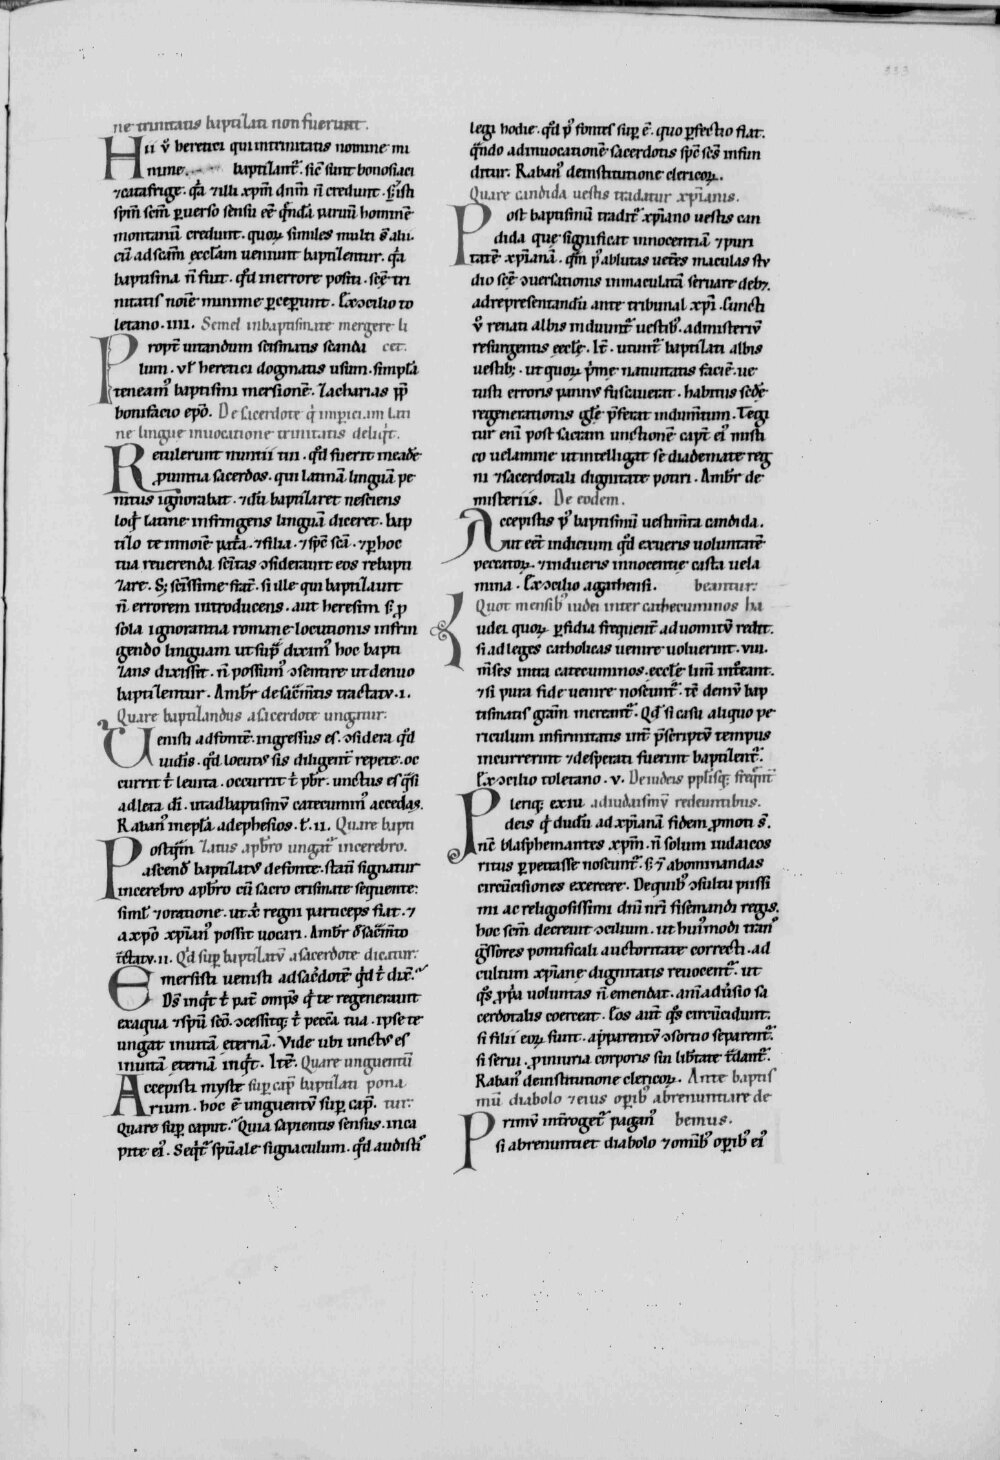 333
ne trinitatis baptizati non fuerunt.
Hii ũ heretici qui in trinitatis nomine mi
nime baptizant᷑. sic̃ sunt bonosiaci
⁊ catafrige. q̃a ⁊ illi xp̄m dn̄m ñ credunt. s; isti
sp̄m sc̄m ꝑuerso sensu eē q̃ndã prauũ hominẽ
montanũ credunt. quoꝝ similes multi s̄ alii.
cũ ad sc̄am eccl̄am ueniunt baptizentur. q̃a
baptisma ñ fuit. qd̓ in errore positi. sc̄e tri
nitatis noīe minime ꝑceperunt. Ex ɔcilio to
letano .IIII. Semel in baptismate mergere li
Propt̃ uitandum scismatis scanda cet.
lum. ul̄ heretici dogmatis usum. simplã
teneam᷒ baptismi mersionẽ. Zacharias pp̄
bonifacio ep̄o. De sacerdote q̓ imperciam lati
ne lingue inuocatione trinitatis deliq̓t.
Retulerunt nuntii tui. qd̓ fuerit in eadẽ
ꝓuintia sacerdos. qui latinã linguã pe
nitus ignorabat. ⁊ dũ baptizaret nesciens
loq̓ latine infringens linguã diceret. bap
tizo te in noīe patr̃a. ⁊ filia. ⁊ spē sc̄a. ⁊ ꝑ hoc
tua reuerenda sc̄itas ɔsiderauit eos rebapti
zare. S; sc̄issime frat̃. si ille qui baptizauit
ñ errorem introducens. aut heresim s; ꝓ
sola ignorantia romane locutionis infrin
gendo linguam ut sup̃ dixim᷒ hoc bapti
zans dixissit. ñ possum᷒ ɔsentire ut denuo
baptizentur. Ambr̄ de sac̄m̄tis tractatu .I.
Quare baptizandus a sacerdote ungitur.
Uenisti ad fontẽ. ingressus es. ɔsidera qd̓
uidis. qd̓ locutus sis diligent̃ repete. oc
currit t̓ leuita. occurrit t̓ pbr̄. unctus es q̃si
adleta di. ut ad baptismũ catecumin᷒ accedas.
Raban᷒ in epl̄a ad ephesios. t̓. II. Quare bapti
Postq̃m zatus a pbr̄o ungat᷑ in cerebro.
ascend̓ baptizatus de fonte. statĩ signatur
in cerebro a pbr̄o cũ sacro crismate sequente
siml̄ ⁊ oratione. ut x̓ regni particeps fiat. ⁊
a xp̄o xp̄ian᷒ possit uocari. Ambr̄ d̓ sac̄m̄to
t̄ctatu. II. Qd̓ sup̱ baptizatũ a sacerdote dicatur.
Emersisti uenisti ad sac̓dotẽ qd̓ t̓ dix̄.
Ds̄ inq̓t t̓ pat̃ omps̄ q̓ te regenerauit
ex aqua ⁊ sp̄u sc̄o. ɔcessitq; t̓ peccata tua. ipse te
ungat in uitã eternã. Vide ubi unctus es
in uitã eternã inq̓t. Itẽ. Quare unguentũ
Accepisti myste sup̱ cap̄ baptizati pona
rium. hoc ē unguentũ sup̱ cap̄. tur.
Quare sup̱ caput. Quia sapientis sensus. in ca
pite ei᷒. Seq̓t᷑ sp̄uale signaculum. qd̓ audisti
legi hodie. qd̓ p᷒ fontes sup̱ ē. quo ꝑfectio fiat.
q̃ndo ad inuocationẽ sacerdotis sp̄c sc̄s infun
ditur. Raban᷒ de institutione clericoꝝ.
Quare candida uestis tradatur xp̄ianis.
Post baptismũ tradit᷑ xp̄iano uestis can
dida que significat innocentiã ⁊ puri
tatẽ xp̄ianã. q̃m p᷒ ablutas uet̃es maculas stu
dio sc̄e ɔuersationis inmaculatã seruare deb;.
ad representandũ ante tribunal xp̄i. Cuncti
ũ renati albis induunt᷑ uestib᷒. ad misteriũ
resurgentis eccl̄e. It̃. utunt᷑ baptizati albis
uestib;. ut quoꝝ p̓me natiuitatis faciẽ. ue
tusti erroris pannus fuscauerat. habitus sc̄de
regenerationis gl̄e p̄ferat indum̄tum. Tegi
tur enī post sacram unctionẽ capt̃ ei᷒ misti
co uelamine ut intelligat se diademate reg
ni ⁊ sacerdotali dignitate potiri. Ambr̄ de
misteriis. De eodem.
Accepistis p᷒ baptismũ uestim̄ta candida.
ut eēt indicium qd̓ exueris uoluntatẽ
peccatoꝝ. ⁊ indueris innocentie casta uela
mina. Ex ɔcilio agathensi. beantur.
Quot mensib᷒ iudei inter cathecuminos ha
Iudei quoꝝ ꝑfidia frequent̃ ad uomitũ redit.
si ad leges catholicas uenire uoluerint. VIII.
m̄ses intra catecuminos. eccl̄e lim̄ int̃eant.
⁊ si pura fide uenire noscunt᷑. tē demũ bap
tismatis gr̄am mereant᷑. Qd̓ si casu aliquo pe
riculum infirmitatis int̃ p̄scriptũ tempus
incurrerint ⁊ desperati fuerint baptizent᷑.
Ex ɔcilio toletano. V. De iudeis pplisq; freq̃nt̃
Plerisq; ex iu ad iudaismũ redeuntibus.
deis q̓ dudũ ad xp̄ianã fidem ꝓmoti s̄.
nc̄ blasphemantes xp̄m. ñ solum iudaicos
ritus ꝑpetrasse noscunt᷑. s; ⁊ abominandas
circũcisiones exercere. De quib᷒ ɔsultu piissi
mi ac religiosissimi dn̄i nr̄i sisenandi regis.
hoc sc̄m decreuit ɔcilium. ut hui᷒modi tran᷒
g̃ssores pontificali auctoritate correcti. ad
cultum xp̄iane dignitatis reuocent᷑. ut
q᷒s ꝓp̓a uoluntas ñ emendat. animaduersio sa
cerdotalis coerceat. Eos aut̃ q᷒s circũcidunt.
si filii eoꝝ sunt. a parentũ ɔsortio separent᷑.
si serui. ꝓ iniuria corporis sui lib̃tate t̃dant᷑.
Raban᷒ de institutione clericoꝝ. Ante baptis
mũ diabolo ⁊ eius oꝑib᷒ abrenuntiare de
Primũ int̃roget᷑ pagan᷒ bemus.
si abrenuntiet diabolo ⁊ om̄ib᷒ oꝑib᷒ ei᷒